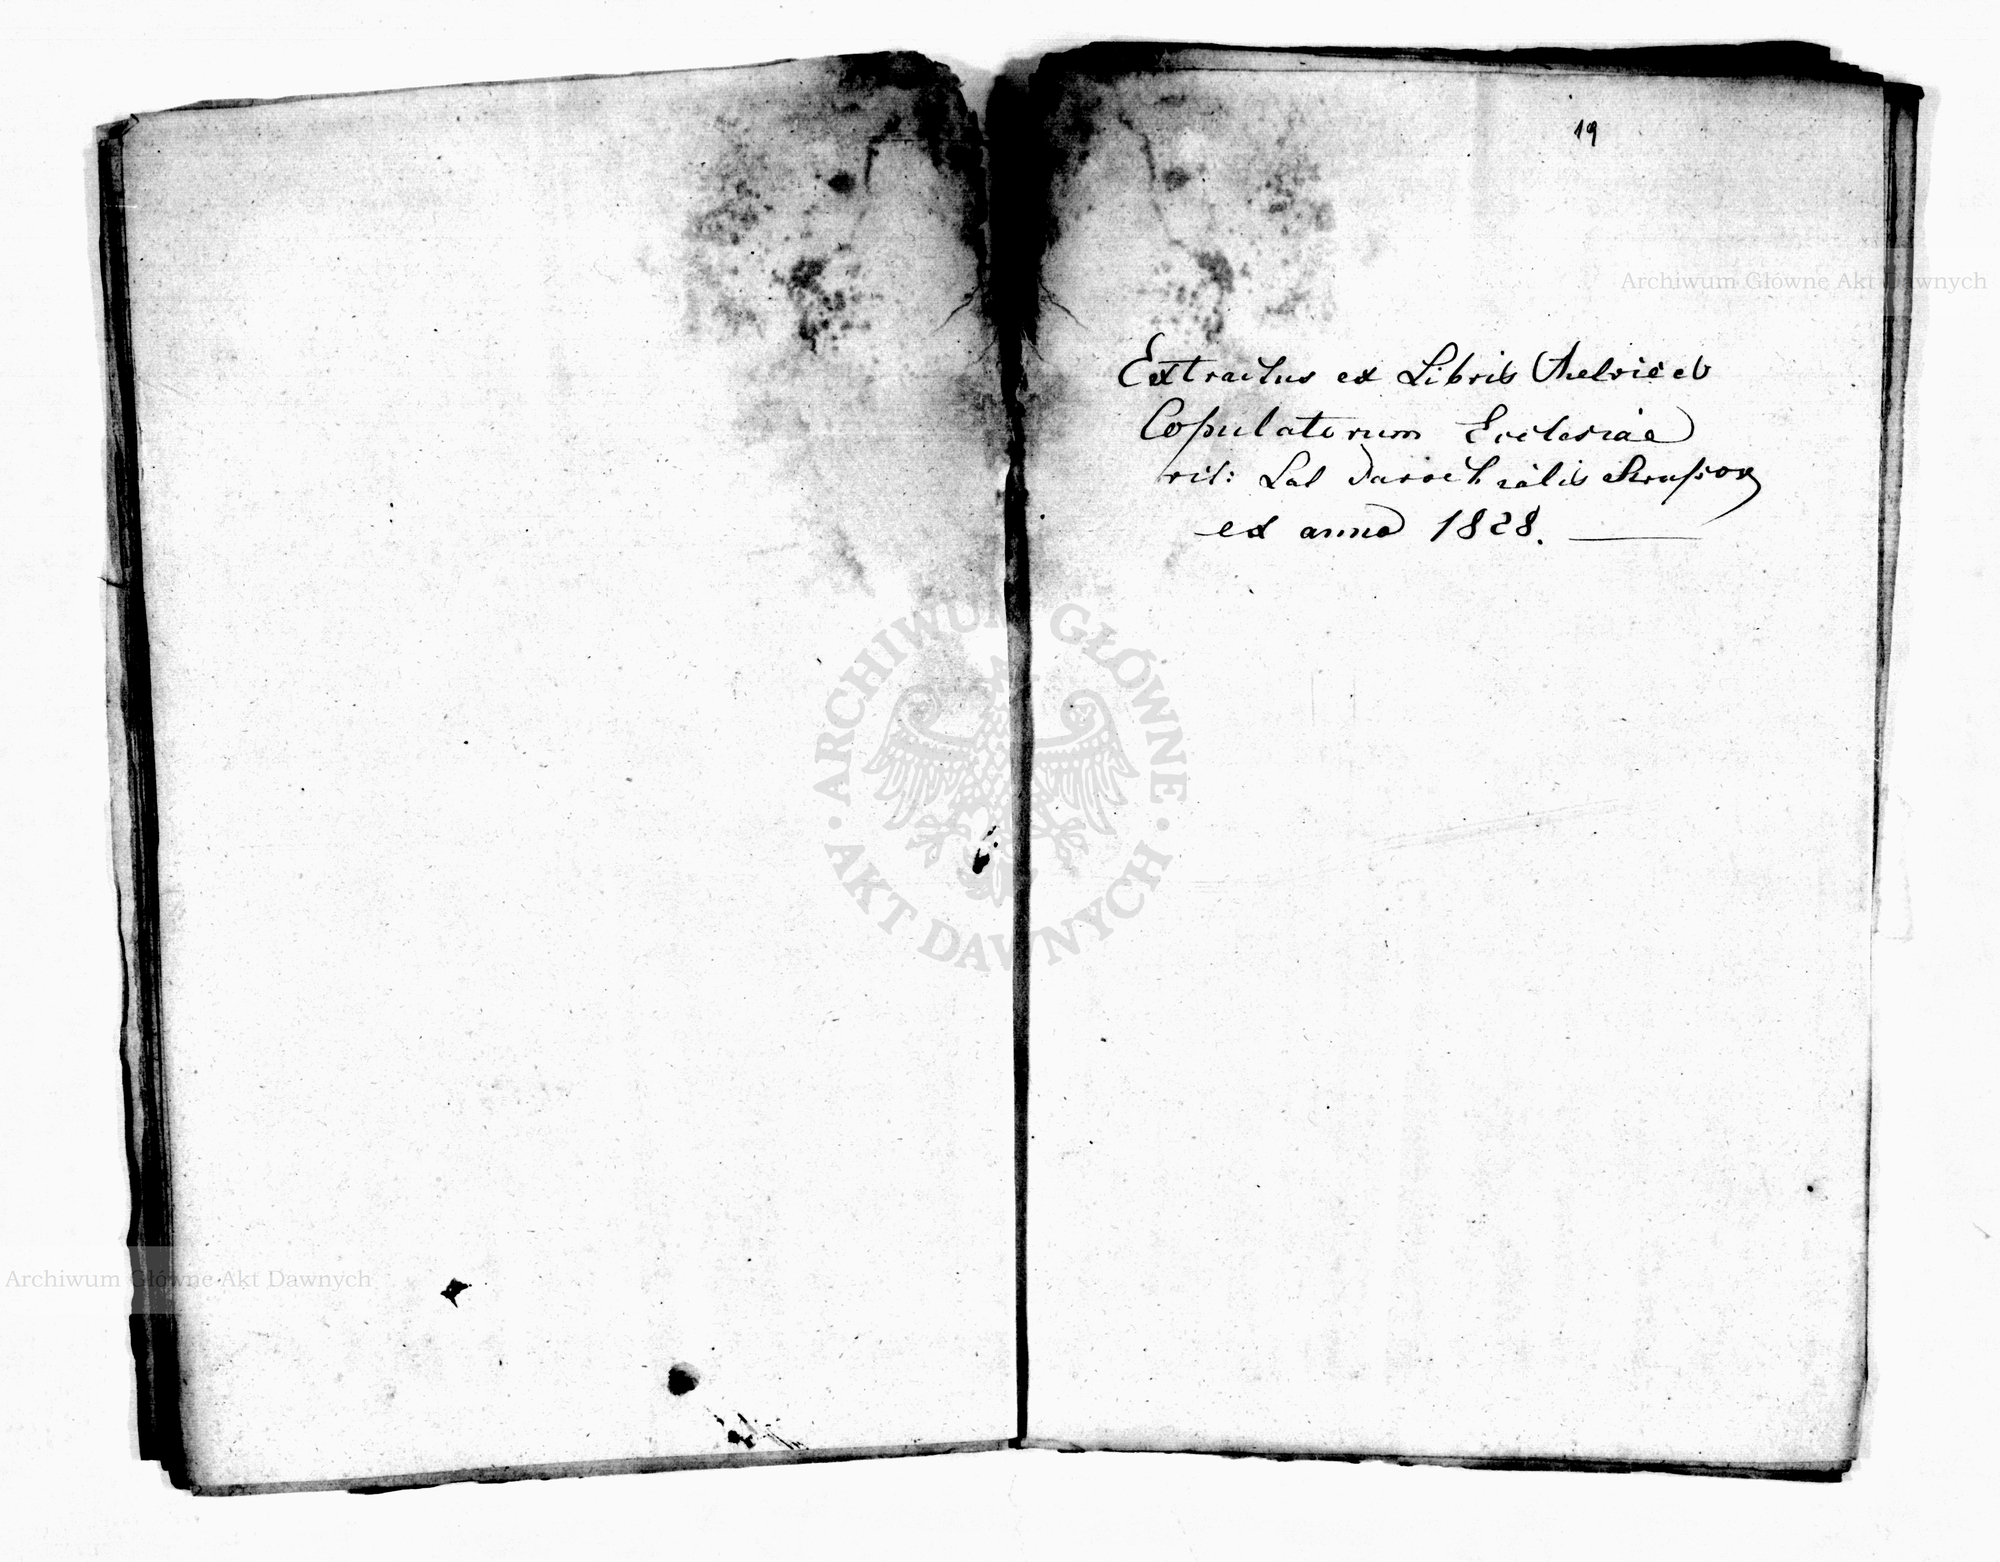 19
Extractus ex Libris Metrices
Copulatorum Ecclesiae
rit: Lat Parochialis
ex anno 1828.
Archiwum Główne Akt Dawnych
ARCHIWUM GŁÓWNE
AKT DAWNYCH
Archiwum Główne Akt Dawnych